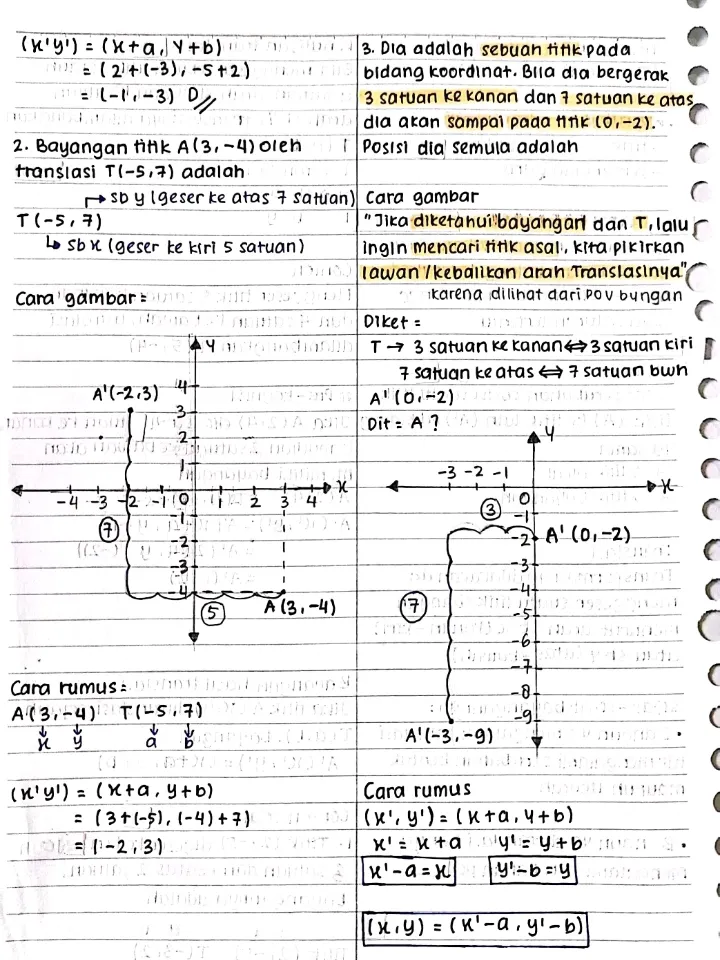 (x'y') = (x+a, y+b)
= (2+(-3), -5+2)
= (-1, -3) D//
2. Bayangan titik A(3,-4) oleh
translasi T(-5,7) adalah
→ sb y (geser ke atas 7 satuan)
T(-5,7)
↳ sb x (geser ke kiri 5 satuan)
Cara gambar =
Y
A'(-2,3)
4
3
2
1
-4 -3 -2 -1 0 1 2 3 4 x
-1
-2
-3
-4
7
5
A(3,-4)
Cara rumus =
A(3,-4) T(-5,7)
x y a b
(x'y') = (x+a, y+b)
= (3+(-5), (-4)+7)
= (-2,3)
3. Dia adalah sebuah titik pada
bidang koordinat. Bila dia bergerak
3 satuan ke kanan dan 7 satuan ke atas
dia akan sampai pada titik (0,-2).
Posisi dia semula adalah
Cara gambar
"Jika diketahui bayangan dan T, lalu
ingin mencari titik asal, kita pikirkan
lawan/kebalikan arah translasinya"
karena dilihat dari POV bungan
Diket =
T → 3 satuan ke kanan ⇔ 3 satuan kiri
7 satuan ke atas ⇔ 7 satuan bwh
A'(0,-2)
Dit = A ?
Y
-3 -2 -1 0 x
-1
-2 A'(0,-2)
-3
-4
-5
-6
-7
-8
-9
3
7
A'(-3,-9)
Cara rumus
(x',y') = (x+a, y+b)
x' = x+a y' = y+b
x'-a = x y'-b = y
(x,y) = (x'-a, y'-b)